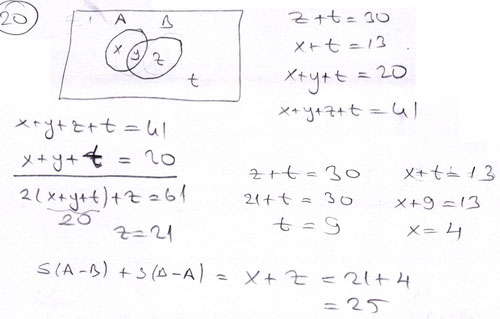 20
A B
x y z
t
z+t=30
x+t=13
x+y+t=20
x+y+z+t=41
x+y+z+t=41
x+y+t=20
2(x+y+t)+z=61
20
z=21
z+t=30
21+t=30
t=9
x+t=13
x+9=13
x=4
S(A-B)+S(B-A)=x+z=21+4
=25